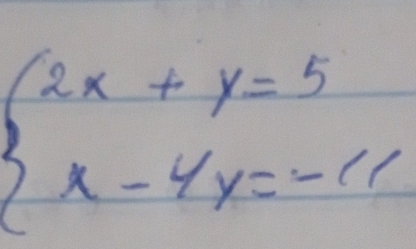 2x + y = 5
x - 4y = -11